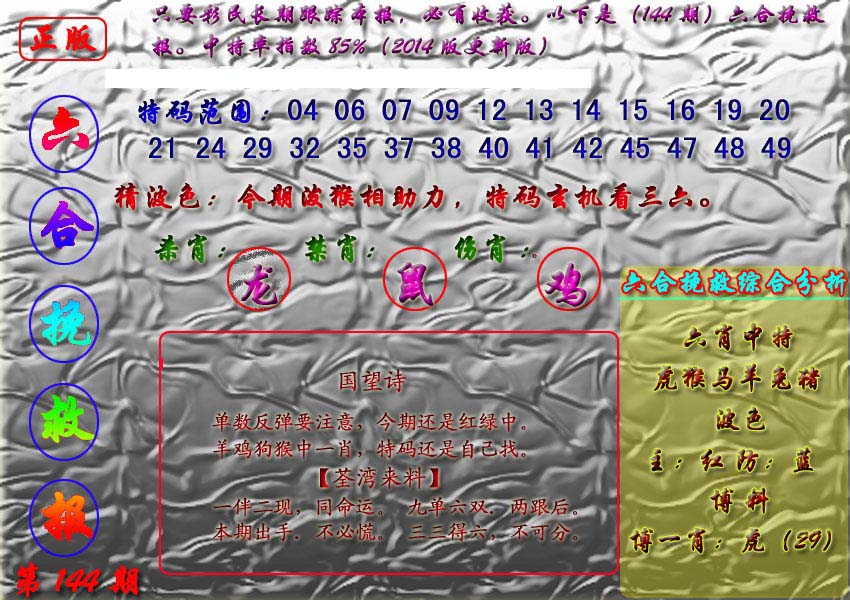 正版
只要彩民长期跟踪本报，必有收获。以下是（144期）六合挽救
报。中特率指数85%（2014版更新版）
六合挽救报
第144期
特码范围：04 06 07 09 12 13 14 15 16 19 20
21 24 29 32 35 37 38 40 41 42 45 47 48 49
猜波色：今期泼猴相助力，特码玄机看三六。
杀肖：龙 禁肖：鼠 伤肖：鸡
国望诗
单数反弹要注意，今期还是红绿中。
羊鸡狗猴中一肖，特码还是自己找。
【荃湾来料】
一伴二现，同命运。 九单六双．两跟后。
本期出手．不必慌。 三三得六，不可分。
六合挽救综合分析
六肖中特
虎猴马羊兔猪
波色
主：红防：蓝
博料
博一肖：虎（29）